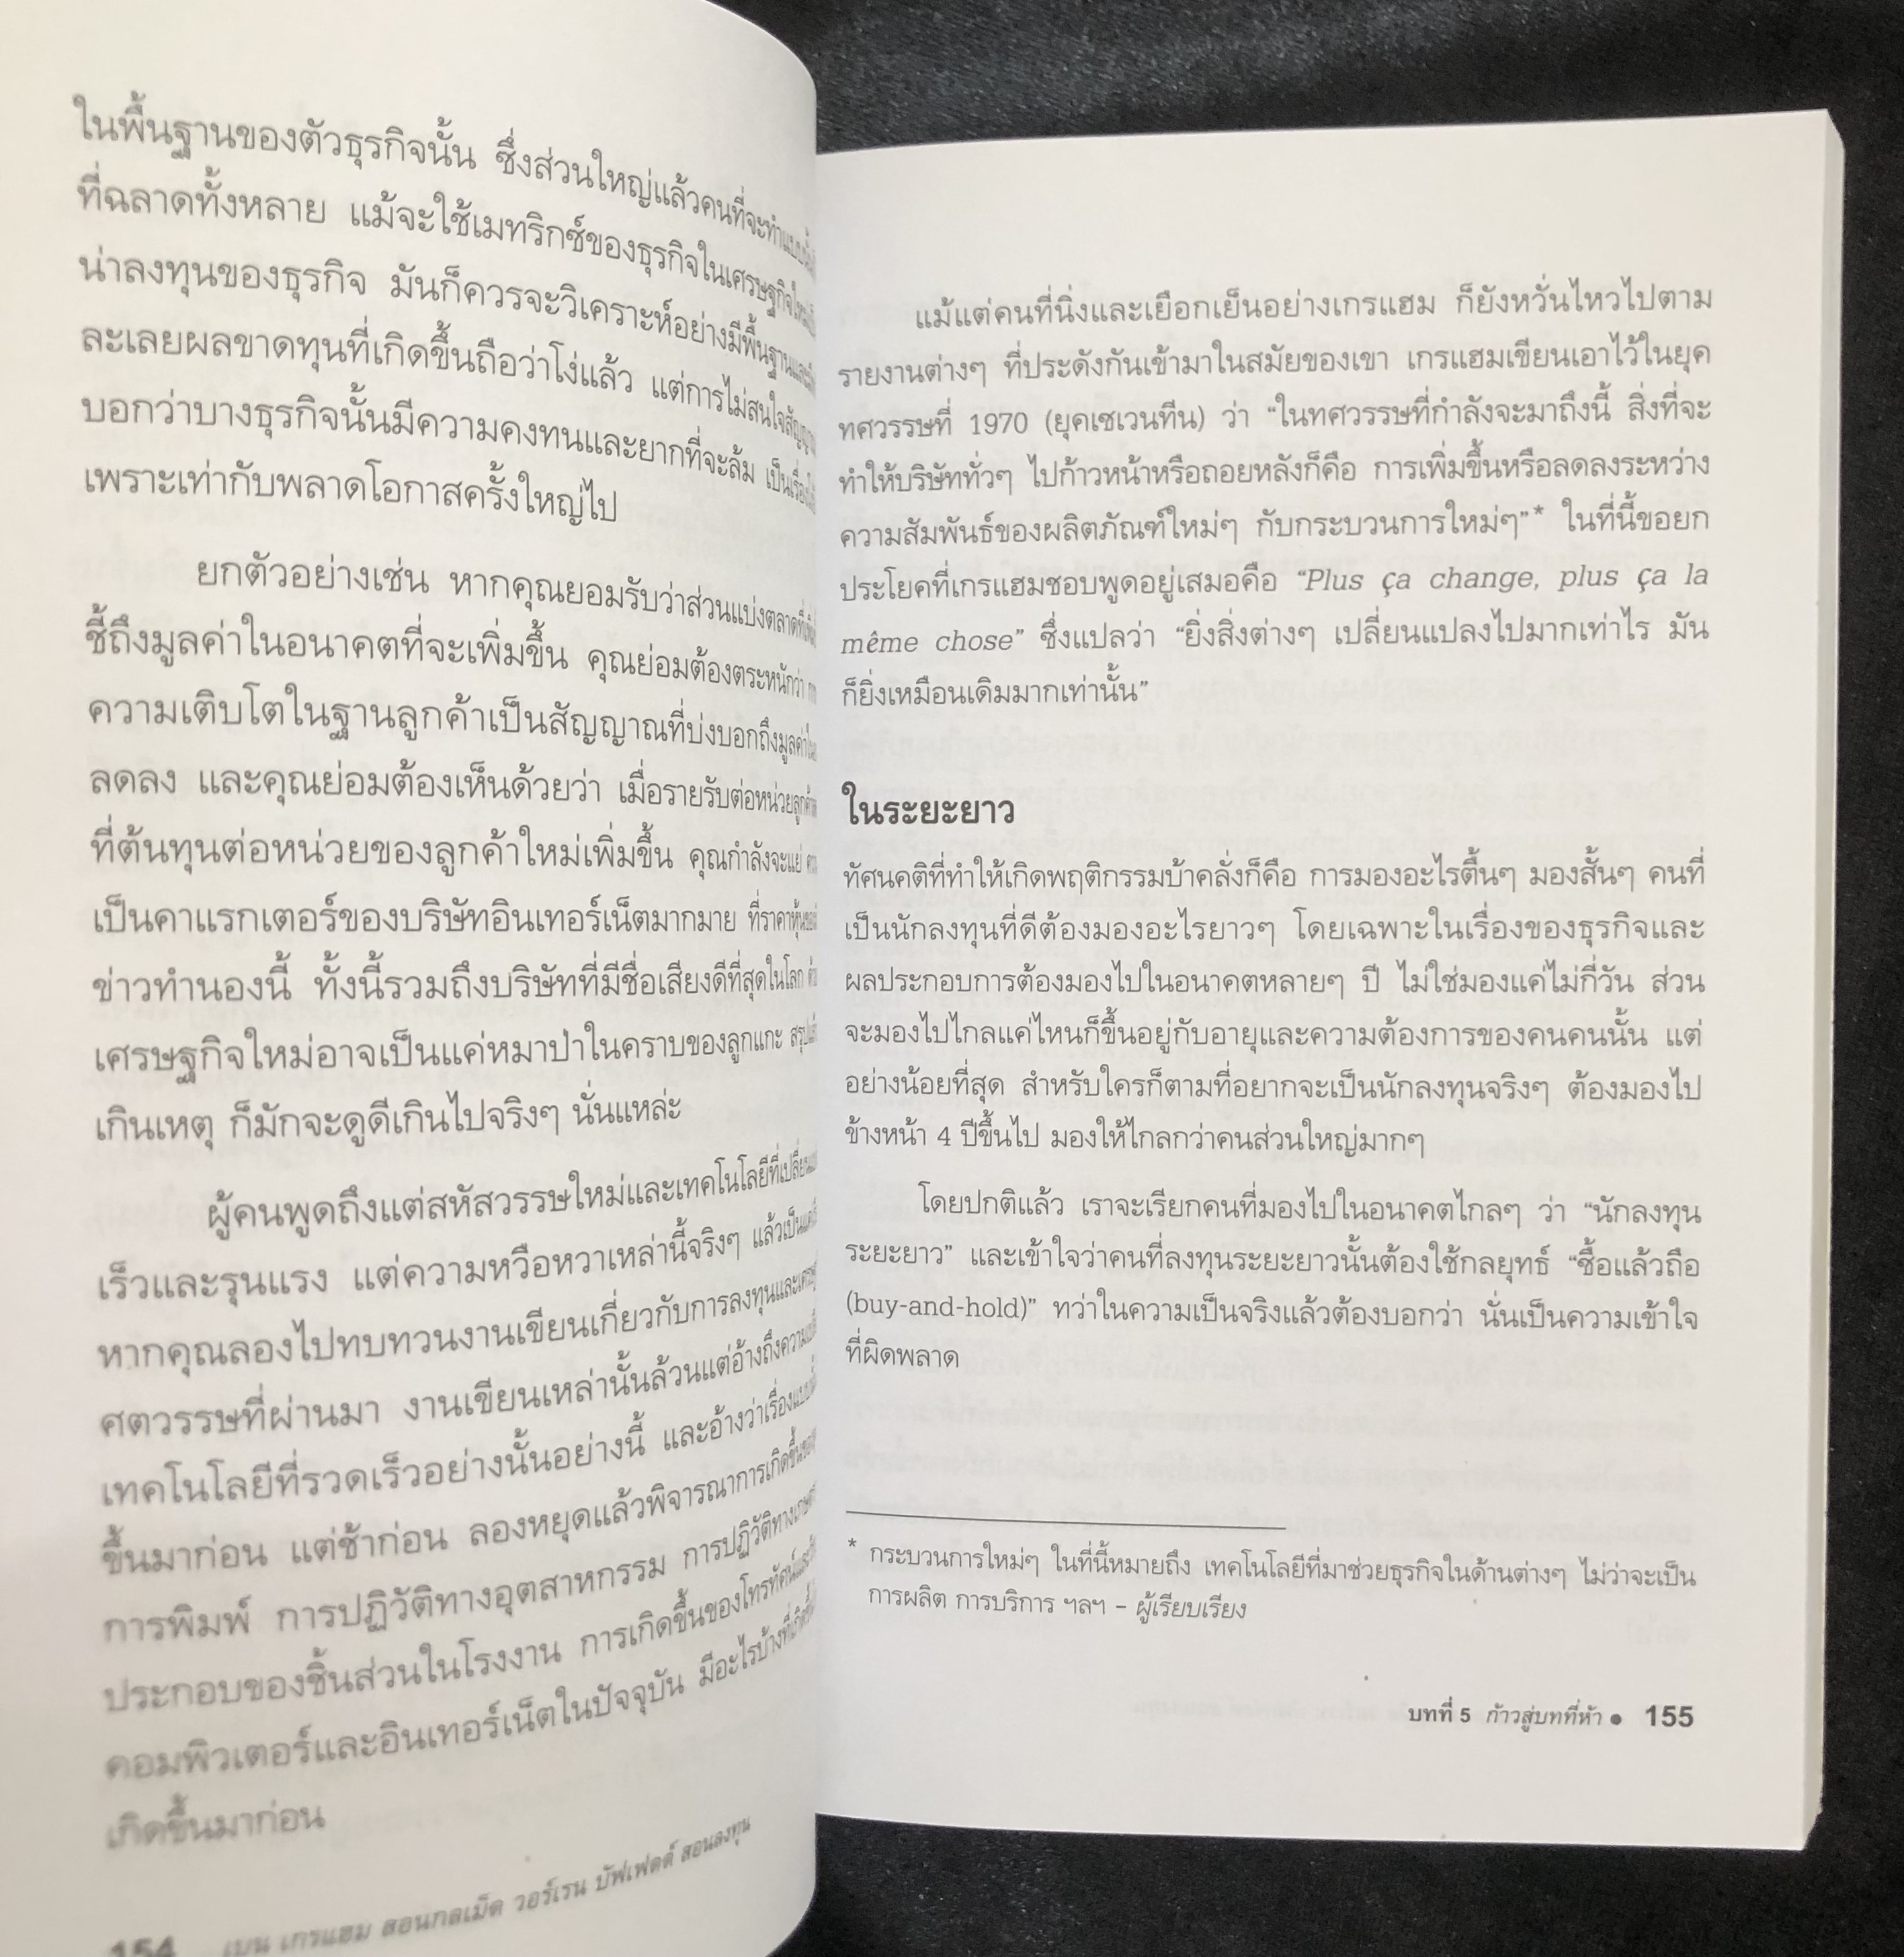 ในพื้นฐานของตัวธุรกิจนั้น ซึ่งส่วนใหญ่แล้วคนที่จะทำแบบนั้น
ที่ฉลาดทั้งหลาย แม้จะใช้เมทริกซ์ของธุรกิจในเศรษฐกิจใหม่
น่าลงทุนของธุรกิจ มันก็ควรจะวิเคราะห์อย่างมีพื้นฐาน
ละเลยผลขาดทุนที่เกิดขึ้นถือว่าโง่แล้ว แต่การไม่สนใจสัญญาณ
บอกว่าบางธุรกิจนั้นมีความคงทนและยากที่จะล้ม
เพราะเท่ากับพลาดโอกาสครั้งใหญ่ไป
ยกตัวอย่างเช่น หากคุณยอมรับว่าส่วนแบ่งตลาดที่
ชี้ถึงมูลค่าในอนาคตที่จะเพิ่มขึ้น คุณย่อมต้องตระหนักว่า
ความเติบโตในฐานลูกค้าเป็นสัญญาณที่บ่งบอกถึงมูลค่า
ลดลง และคุณย่อมต้องเห็นด้วยว่า เมื่อรายรับต่อหน่วยลูกค้า
ที่ต้นทุนต่อหน่วยของลูกค้าใหม่เพิ่มขึ้น คุณกำลังจะแย่
เป็นคาแรกเตอร์ของบริษัทอินเทอร์เน็ตมากมาย ที่ราคาหุ้น
ข่าวทำนองนี้ ทั้งนี้รวมถึงบริษัทที่มีชื่อเสียงดีที่สุดในโลก
เศรษฐกิจใหม่อาจเป็นแค่หมาป่าในคราบของลูกแกะ
เกินเหตุ ก็มักจะดูดีเกินไปจริงๆ นั่นแหล่ะ
ผู้คนพูดถึงแต่สหัสวรรษใหม่และเทคโนโลยีที่
เร็วและรุนแรง แต่ความหวือหวาเหล่านี้จริงๆ แล้วเป็น
หากคุณลองไปทบทวนงานเขียนเกี่ยวกับการลงทุนและ
ศตวรรษที่ผ่านมา งานเขียนเหล่านั้นล้วนแต่อ้างถึงความ
เทคโนโลยีที่รวดเร็วอย่างนั้นอย่างนี้ และอ้างว่าเรื่อง
ขึ้นมาก่อน แต่ช้าก่อน ลองหยุดแล้วพิจารณาการเกิดขึ้นของ
การพิมพ์ การปฏิวัติทางอุตสาหกรรม การปฏิวัติทาง
ประกอบของชิ้นส่วนในโรงงาน การเกิดขึ้นของโทรทัศน์และ
คอมพิวเตอร์และอินเทอร์เน็ตในปัจจุบัน มีอะไรบ้างที่
เกิดขึ้นมาก่อน
154 เบน เกรแฮม สอนกลเม็ด วอร์เรน บัฟเฟตต์ สอนลงทุน
แม้แต่คนที่นิ่งและเยือกเย็นอย่างเกรแฮม ก็ยังหวั่นไหวไปตาม
รายงานต่างๆ ที่ประดังกันเข้ามาในสมัยของเขา เกรแฮมเขียนเอาไว้ในยุค
ทศวรรษที่ 1970 (ยุคเซเวนทีน) ว่า “ในทศวรรษที่กำลังจะมาถึงนี้ สิ่งที่จะ
ทำให้บริษัททั่วๆ ไปก้าวหน้าหรือถอยหลังก็คือ การเพิ่มขึ้นหรือลดลงระหว่าง
ความสัมพันธ์ของผลิตภัณฑ์ใหม่ๆ กับกระบวนการใหม่ๆ”* ในที่นี้ขอยก
ประโยคที่เกรแฮมชอบพูดอยู่เสมอคือ “Plus ça change, plus ça la
même chose” ซึ่งแปลว่า “ยิ่งสิ่งต่างๆ เปลี่ยนแปลงไปมากเท่าไร มัน
ก็ยิ่งเหมือนเดิมมากเท่านั้น”
ในระยะยาว
ทัศนคติที่ทำให้เกิดพฤติกรรมบ้าคลั่งก็คือ การมองอะไรตื้นๆ มองสั้นๆ คนที่
เป็นนักลงทุนที่ดีต้องมองอะไรยาวๆ โดยเฉพาะในเรื่องของธุรกิจและ
ผลประกอบการต้องมองไปในอนาคตหลายๆ ปี ไม่ใช่มองแค่ไม่กี่วัน ส่วน
จะมองไปไกลแค่ไหนก็ขึ้นอยู่กับอายุและความต้องการของคนคนนั้น แต่
อย่างน้อยที่สุด สำหรับใครก็ตามที่อยากจะเป็นนักลงทุนจริงๆ ต้องมองไป
ข้างหน้า 4 ปีขึ้นไป มองให้ไกลกว่าคนส่วนใหญ่มากๆ
โดยปกติแล้ว เราจะเรียกคนที่มองไปในอนาคตไกลๆ ว่า “นักลงทุน
ระยะยาว” และเข้าใจว่าคนที่ลงทุนระยะยาวนั้นต้องใช้กลยุทธ์ “ซื้อแล้วถือ
(buy-and-hold)” ทว่าในความเป็นจริงแล้วต้องบอกว่า นั่นเป็นความเข้าใจ
ที่ผิดพลาด
* กระบวนการใหม่ๆ ในที่นี้หมายถึง เทคโนโลยีที่มาช่วยธุรกิจในด้านต่างๆ ไม่ว่าจะเป็น
การผลิต การบริการ ฯลฯ – ผู้เรียบเรียง
บทที่ 5 ก้าวสู่บทที่ห้า ● 155